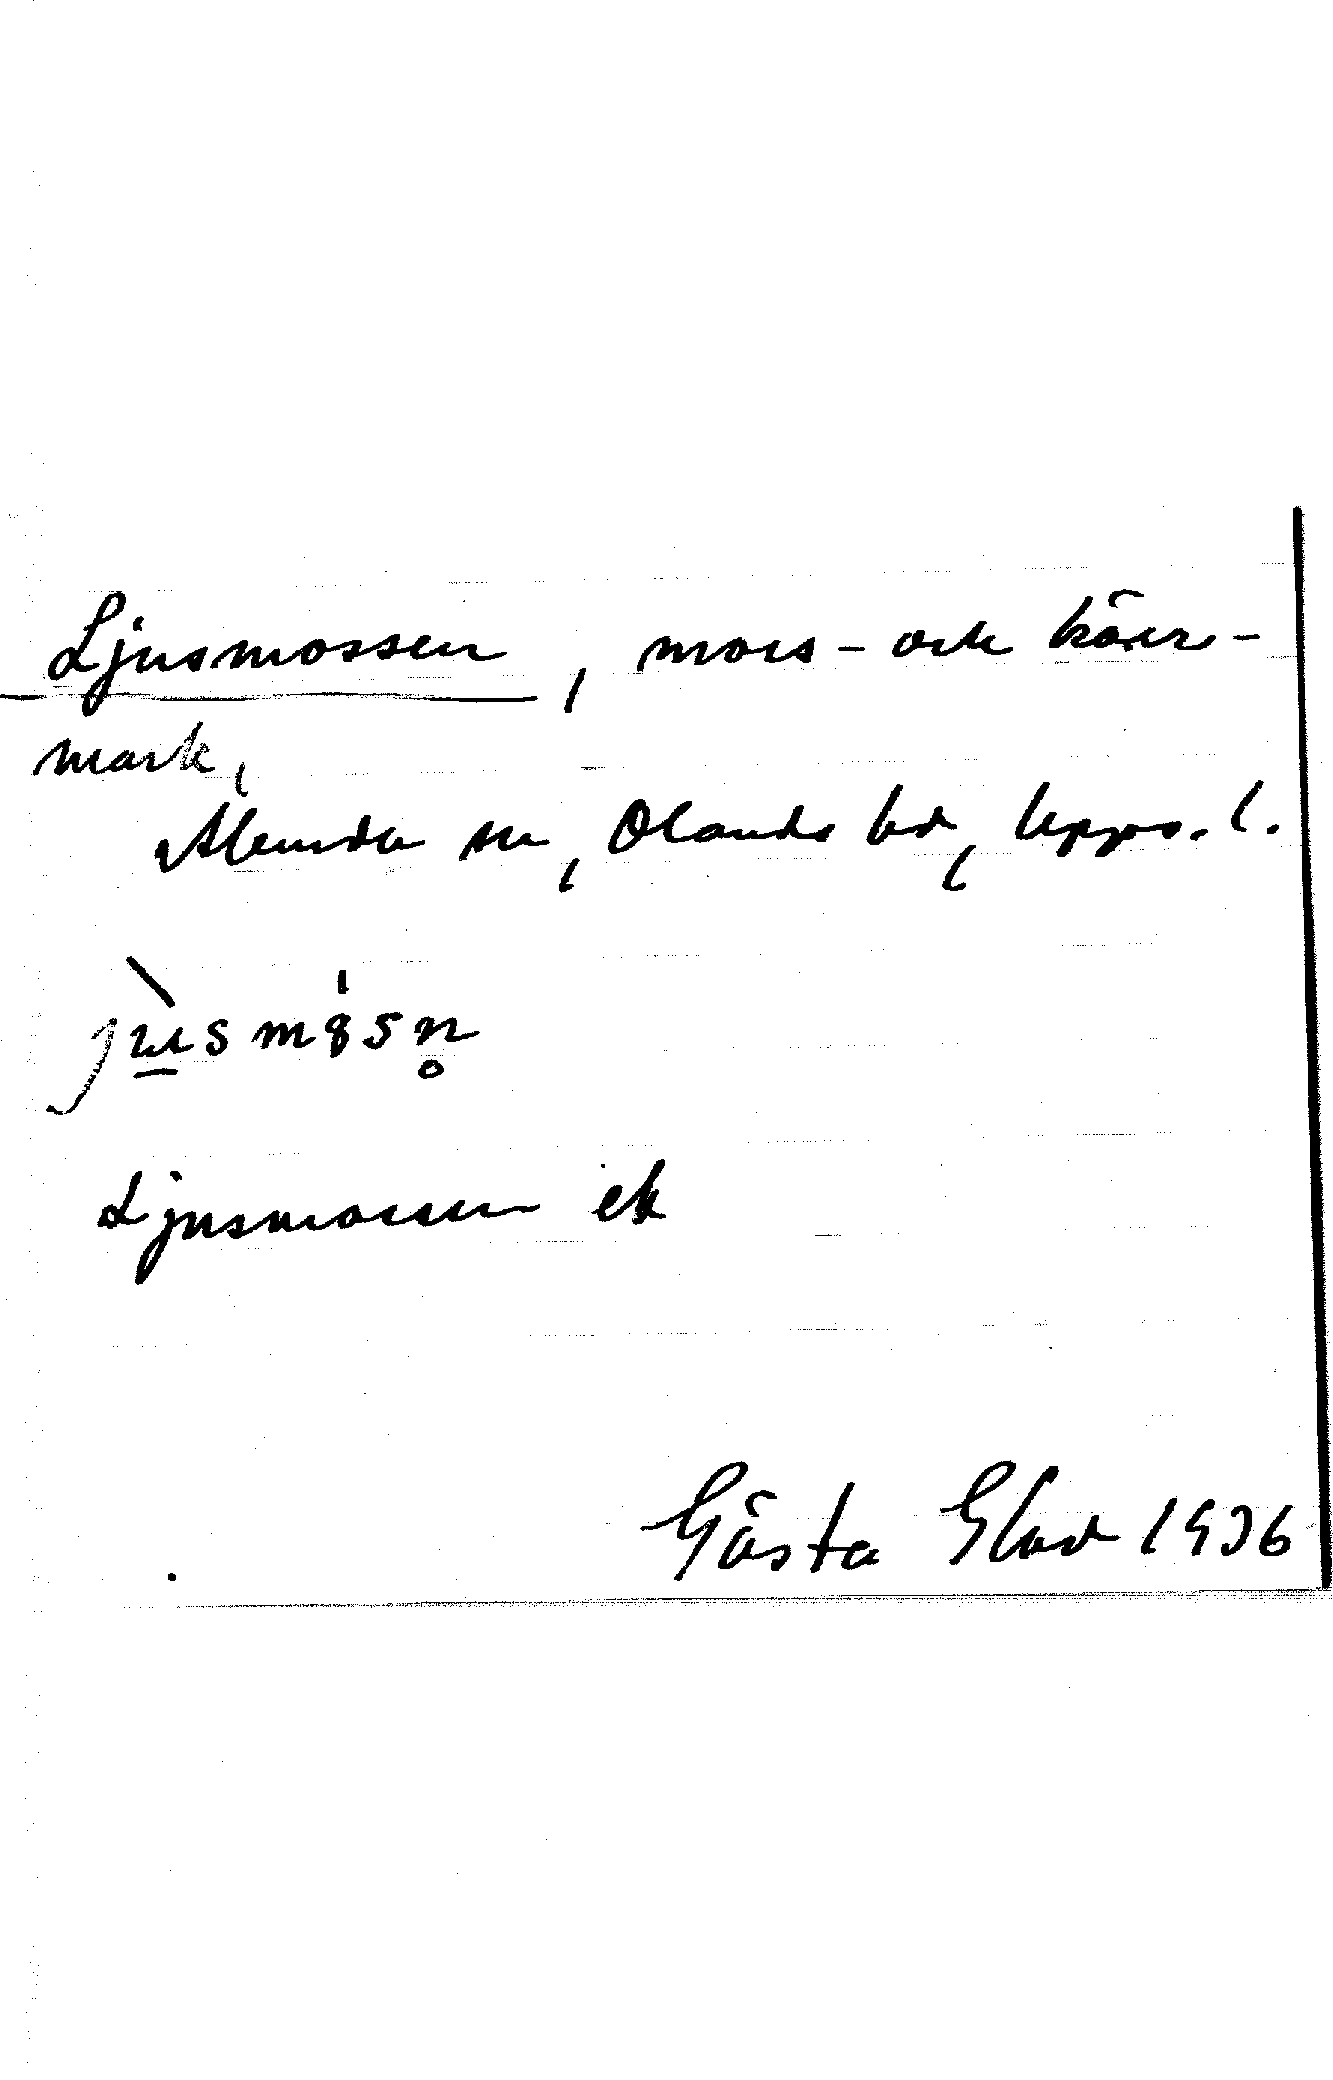 Ljusmossen, moss- och kärr-
mark,
Alunda sn, Olands hd, Upps. l.
Ljusmossen ek
Gösta Elvd 1936